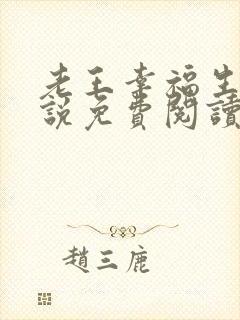 老王幸福生
說免費閱讀
趙三鹿